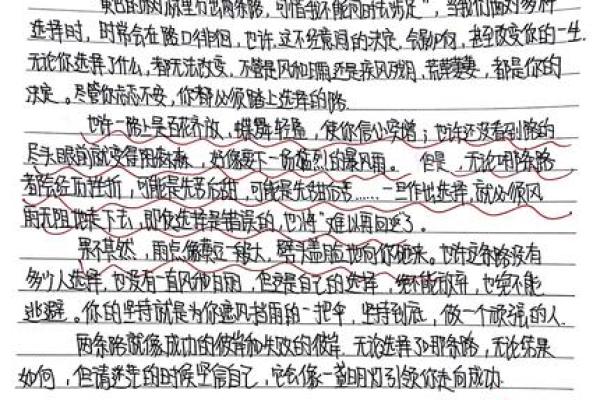 "黄色的树林里分出两条路，可惜我不能同时去涉足"，当我们面对多种
选择时，时常会在路口徘徊，也许，这不经意间的决定，会影响，甚至改变你的一生.
无论你选择了什么，都无法改变，不管是风和日丽还是疾风残月，荒草萋萋，都是你的
决定。尽管你忐忑不安，你都必须踏上选择的路.
也许一路上是百花齐放，蝶舞轻盈，使你信心字增；也许还没看到路的
尽头眼前就变得阴森森，好像要下一场猛烈的暴风雨。但是，无论哪条路
都会经历挫折，可能是先苦后甜，可能是先甜后苦……一旦作出选择，就必须风
雨无阻地来下去，即使选择是错误的，也将"难以再回返了。
果不其然，雨点像豆一般大，劈头盖脸地向你砸来。也许这条路没有
多少人选择，也没有一直风和日丽，但这是自己的选择，绝不能放弃，也绝不能
逃避。你的坚持就是为你遮风挡雨的一把伞，坚持到底，做一个顽强的人.
两条路就像成功的彼岸和失败的彼岸.无论选择了哪条路，无论结果
如何，但请迷茫的时候坚信自己，它会像一盏明灯引领你走向成功.